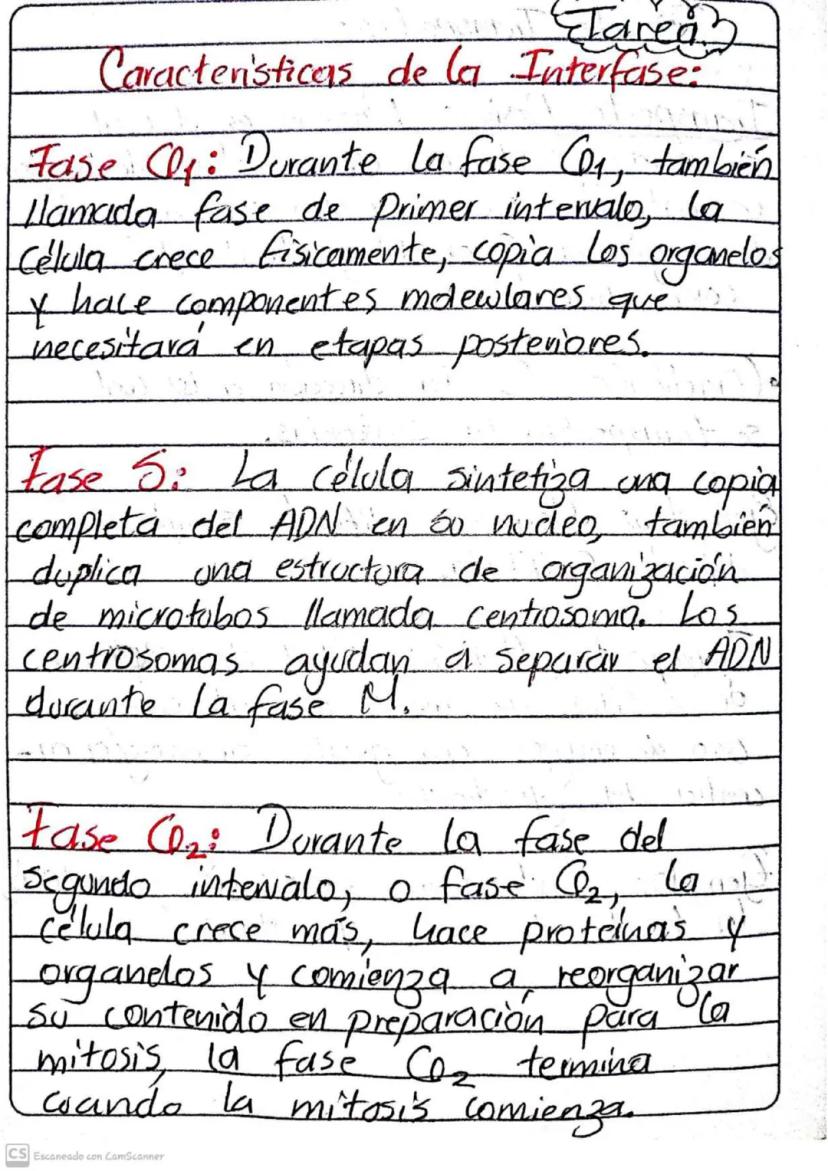 Tarea
Características de la Interfase:
Fase G1: Durante la fase G1, también
llamada fase de primer intervalo, la
célula crece físicamente, copia los organelos
y hace componentes moleculares que
necesitará en etapas posteriores.
Fase S: La célula sintetiza una copia
completa del ADN en su nucleo, también
duplica una estructura de organización
de microtubos llamada centrosoma. Los
centrosomas ayudan a separar el ADN
durante la fase M.
Fase G2: Durante la fase del
segundo intervalo, o fase G2, la
célula crece más, hace proteínas y
organelos y comienza a reorganizar
su contenido en preparación para la
mitosis, la fase G2 termina
cuando la mitosis comienza.
CS Escaneado con CamScanner